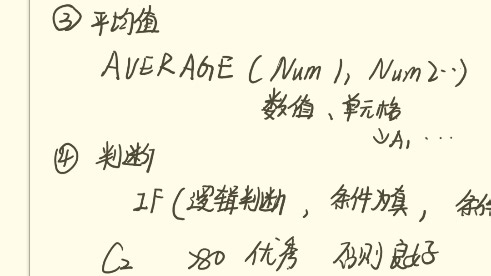 ③ 平均值
AVERAGE (Num1, Num2…)
数值、单元格
↓A1 …
④ 判断
IF (逻辑判断, 条件为真, 条件
C2 >80 优秀 否则良好